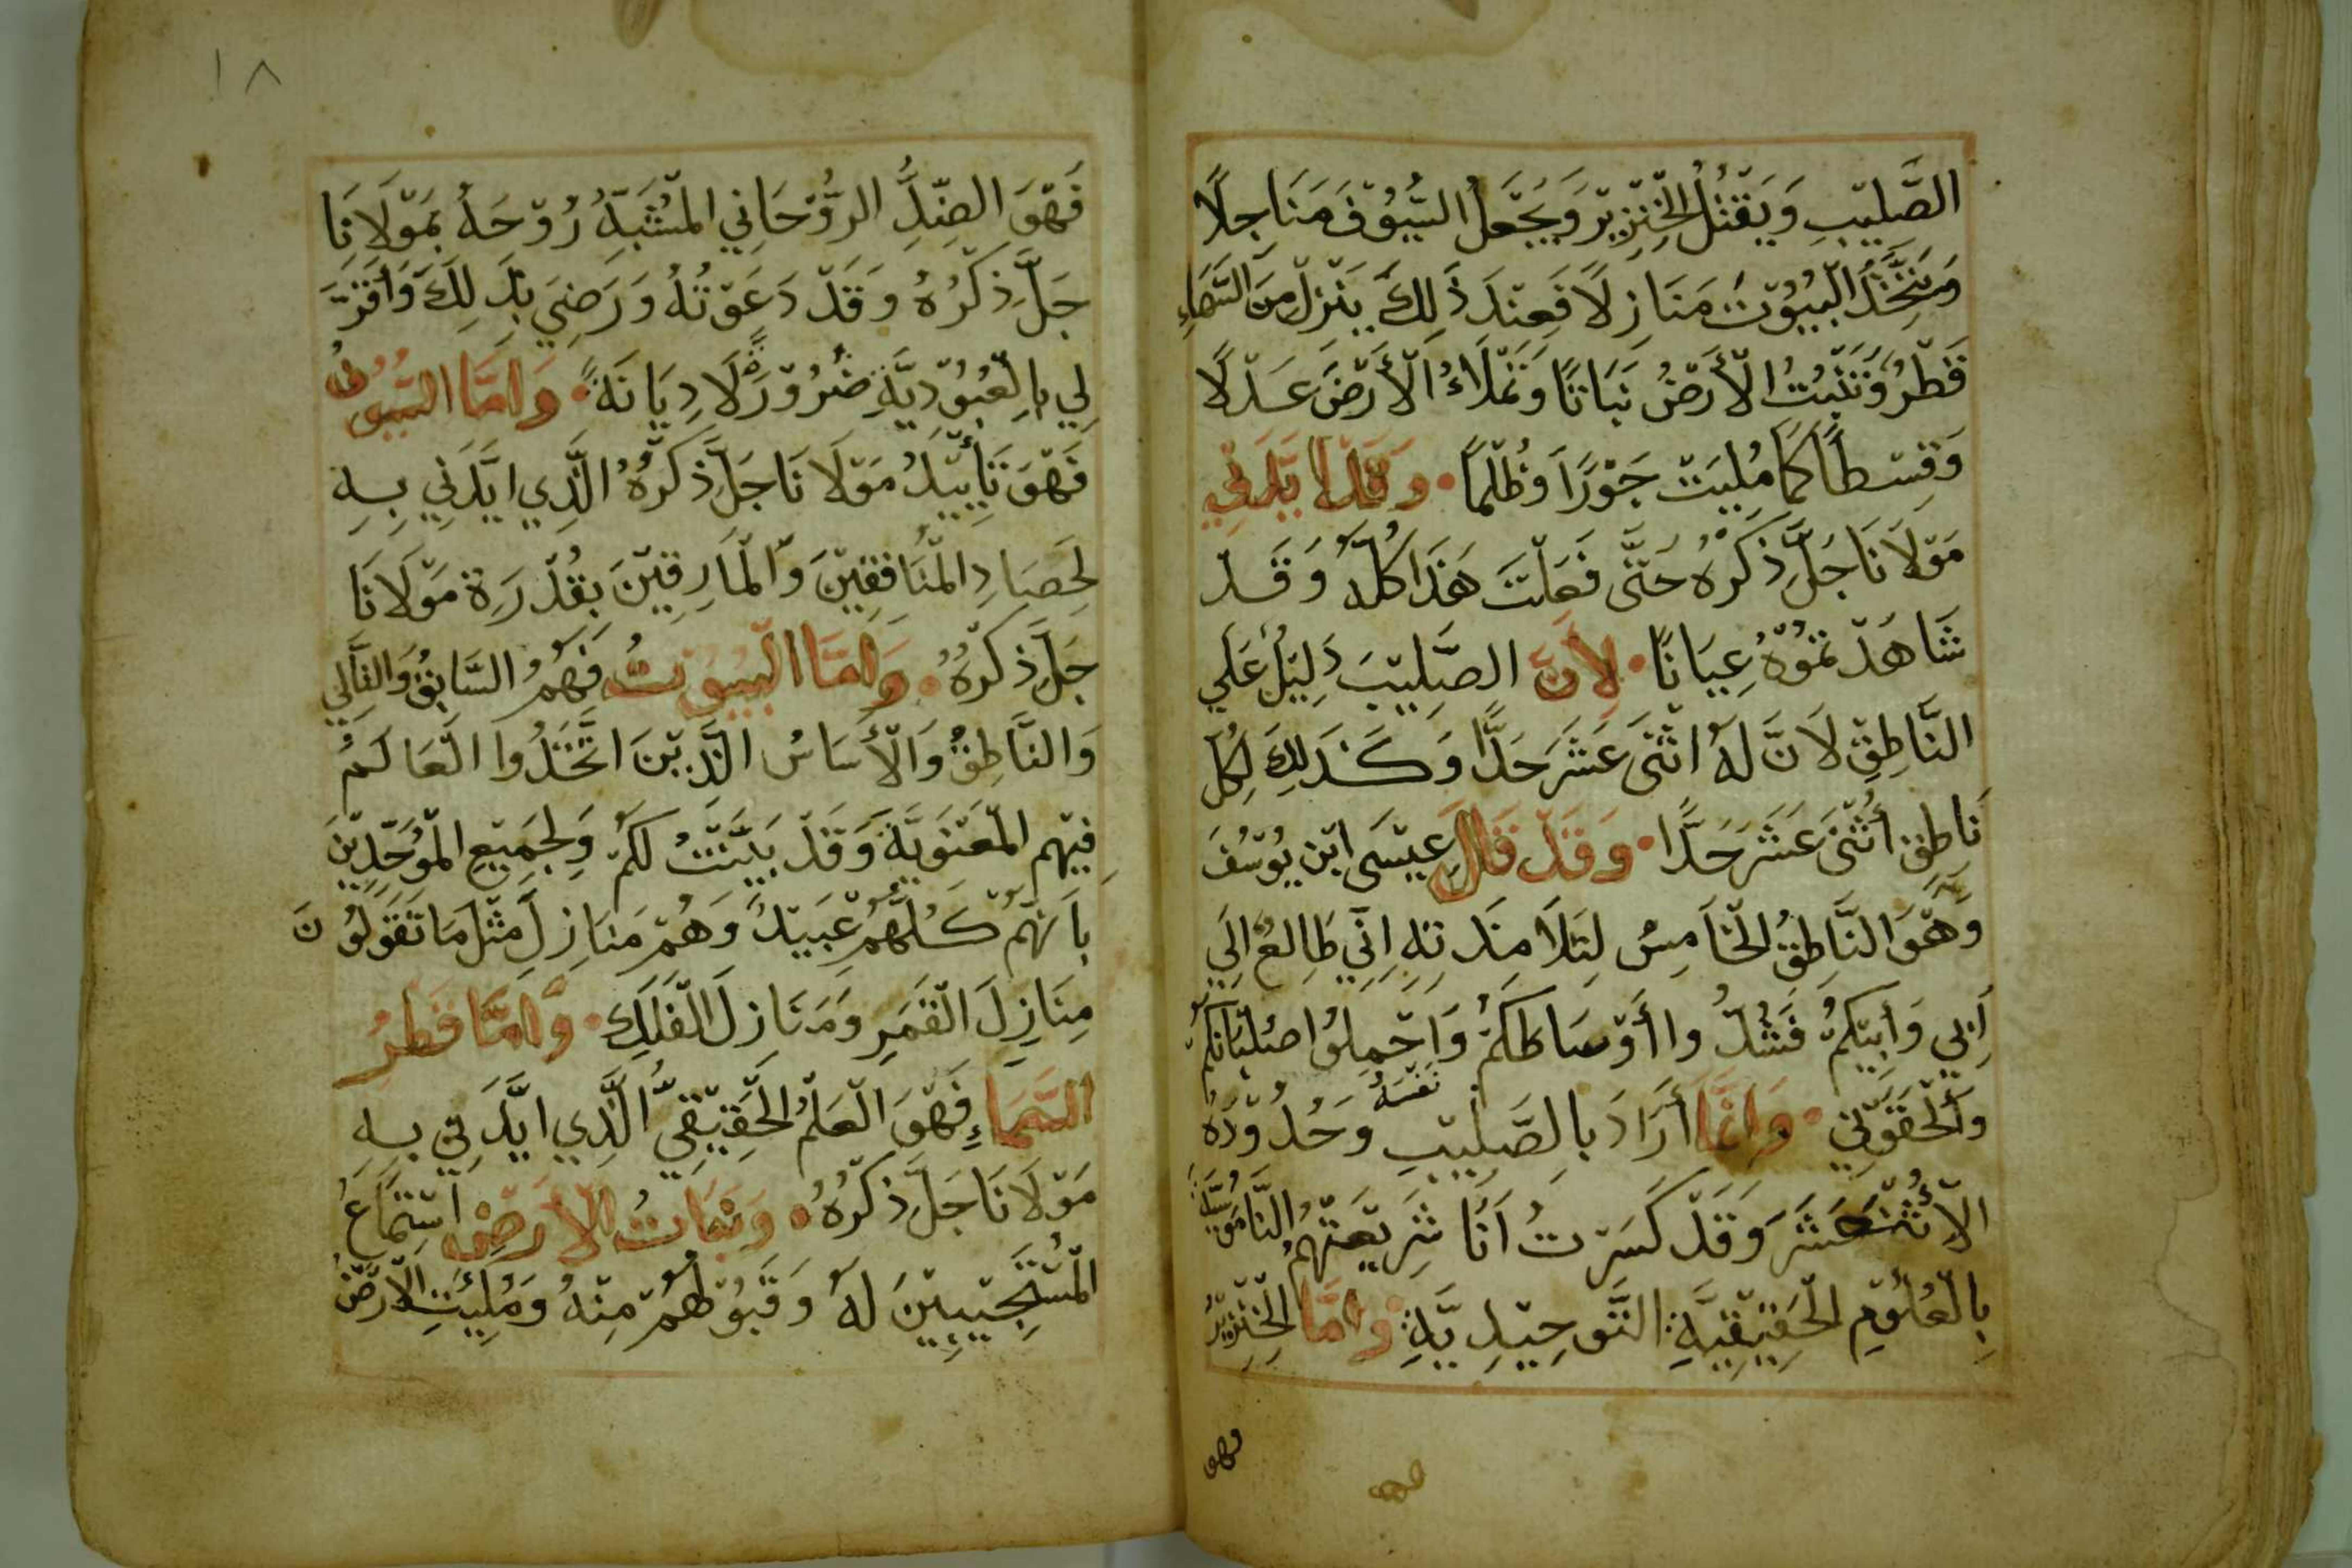 الصَّلِيْبِ وَيَقْتُلُ الْخِنْزِيْرَ وَيَجْعَلُ السُّيُوْفَ مَنَاجِلًا
وَيَتَّخِذُ الْبُيُوْتَ مَنَازِلًا فَعِنْدَ ذَلِكَ يَنْزِلُ مِنَ السَّمَاءِ
قَطْرُ وَتَنْبِتُ الْأَرْضُ نَبَاتًا وَتَمْلَاءُ الْأَرْضَ عَدْلًا
وَقِسْطًا كَمَا مُلِيَتْ جَوْرًا وَظُلْمًا. وَقَدْ اَيَّدَنِي
مَوْلَانَا جَلَّ ذِكْرُهُ حَتَّى فَعَلْتَ هَذَا كُلَّهُ وَقَدْ
شَاهَدْتُمُوْهُ عِيَانًا. لِأَنَّ الصَّلِيْبَ دَلِيْلُ عَلَي
النَّاطِقِ لَانَّ لَهُ اثْنَى عَشَرَ حَدًّا وَكَذَلِكَ لِكُلِّ
نَاطِقٍ اُثْنَى عَشَرَ حَدًّا. وَقَدْ قَالَ عِيْسَى ابْن يُوْسُفَ
وَهُوَ النَّاطِقُ الْخَامِسُ لِتَلَامِذَتِهِ اِنِّي طَالِعُ اِلَي
اَبِي وَاَبِيْكُمْ فَشُدُّوا أَوْسَاطَكُمْ وَاَحْمِلُوا صُلْبَانَكُمْ
وَأَلْحَقُوْنِي. وَاِنَّمَا أَرَادَ بِالصَّلِيْبِ نَفْسَهُ وَحُدُوْدَهُ
الْأُثْنَعَشَرَ وَقَدْ كَسَرْتُ أَنَا شَرِيْعَتَهُمُ النَّامُوْسِيَّةَ
بِالْعُلُوْمِ الْحَقِيْقِيَّةِ التَّوحِيْدِيَّةِ. وَاَمَّا الْخِنْزِيْرُ
فهو
١٨
فَهْوَ الضِّدُّ الرُّوْحَانِي الْمُشْبَهُ رُوْحَهُ بِمَوْلَانَا
جَلَّ ذِكْرُهُ وَقَدْ دَعَوْتُهُ وَرَضِيَ بِذَلِكَ وَأَقَرَّ
لِي بِالْعُبُوْدِيَّةِ ضُرُوْرَةً لَا دِيَانَةً. وَاَمَّا السُّيُوْفُ
فَهْوَ تَأْيِيْدُ مَوْلَانَا جَلَّ ذِكْرُهُ الَّذِي اَيَّدَنِي بِهِ
لِحَصَادِ الْمُنَافِقِيْنَ وَالْمَارِقِيْنَ بِقُدْرَةِ مَوْلَانَا
جَلَّ ذِكْرُهُ. وَاَمَّا الْبُيُوْتُ فَهُمُ السَّابِقُ وَالتَّالِي
وَالنَّاطِقُ وَالْأَسَاسُ الَّذِيْنَ اتَّخَذُوا الْعَالَمُ
فِيْهِم الْمَعْنَوِيَّةَ وَقَدْ بَيَّنْتُ لَكُمْ وَلِجَمِيْعِ الْمُوَحِّدِيْنَ
بِاَنَّهُمْ كُلَّهُمْ عَبِيْدً وَهُمْ مَنَازِلَ مَثْلَ مَا تَقُوْلُوْنَ
مِنَازِلَ الْقَمَرِ وَمَنَازِلَ الْفَلَكِ. وَاَمَّا قَطْرُ
السَّمَاءِ فَهْوَ الْعَلْمُ الْحَقِيْقِيُّ الَّذِي اَيَّدَنِي بِهِ
مَوْلَانَا جَلَّ ذِكْرُهُ. وَنَبَاتُ الْأَرْضِ اسْتِمَاعُ
الْمُسْتَجِيْبِيْنَ لَهُ وَقَبُوْلُهُمْ مِنْهُ وَمُلِيَتِ الْأَرْضُ